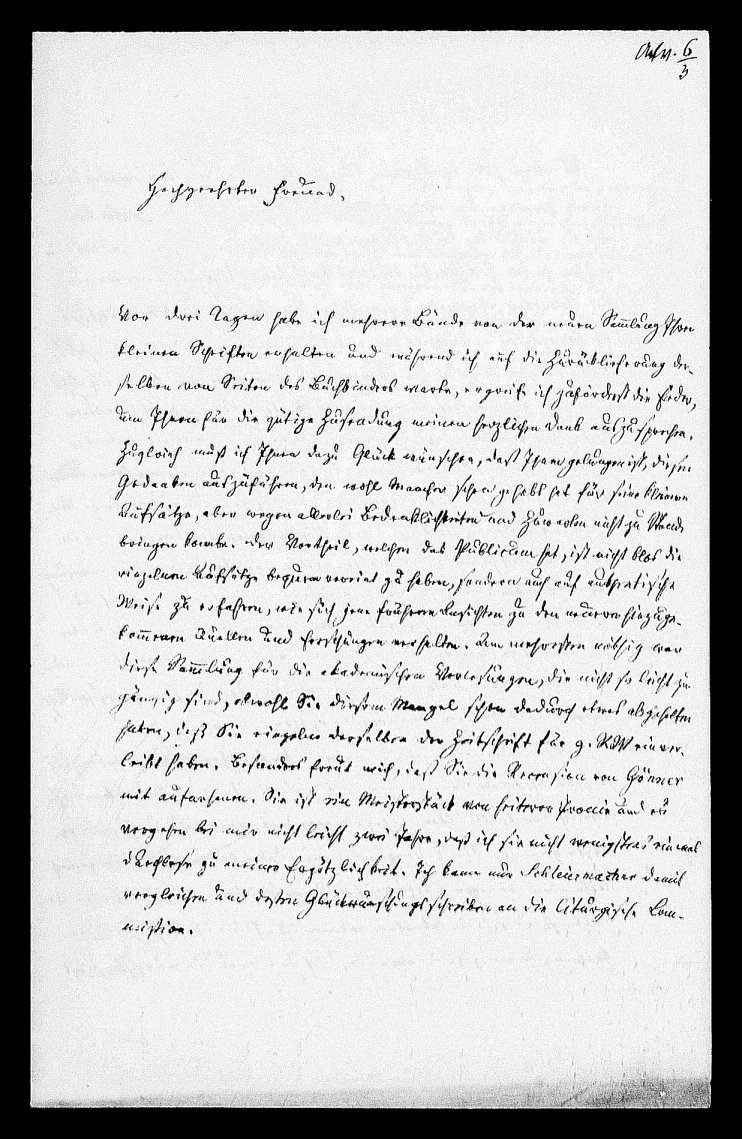 Antw. 6/3
Hochverehrter Freund,
Vor drei Tagen habe ich mehrere Bände von der neuen Sammlung Ihrer
kleinen Schriften erhalten und während ich auf die Zurücklieferung der-
selben von Seiten des Buchbinders warte, ergreife ich zuförderst die Feder,
um Ihnen für die gütige Zusendung meinen herzlichen Dank auszusprechen.
Zugleich muß ich Ihnen dazu Glück wünschen, daß Ihnen gelungen ist, diesen
Gedanken auszuführen, den wohl Mancher schon gehabt hat für seine kleinen
Aufsätze, aber wegen allerlei Bedenklichkeiten und nicht zu Stande
bringen konnte. Der Vortheil, welchen das Publicum hat, ist nicht blos die
einzelnen Aufsätze bequem vereint zu haben, sondern auch auf authentische
Weise zu erfahren, wie sich jene früheren Ansichten zu den neueren hinzuge-
kommenen Quellen und Forschungen verhalten. Am mehresten nöthig war
diese Sammlung für die akademischen Vorlesungen, die nicht so leicht zu-
gängig sind, obwohl Sie diesem Mangel schon dadurch etwas abgeholfen
haben, daß Sie einzelne derselben der Zeitschrift für g. RW einver-
leibt haben. Besonders freut mich, daß Sie die Recension von Gönner
mit aufnehmen. Sie ist ein Meisterstück von heiterer Ironie und es
vergehen bei mir nicht leicht zwei Jahre, daß ich sie nicht wenigstens einmal
durchlese zu meiner Ergötzlichkeit. Ich kann nur Schleiermacher damit
vergleichen und dessen Glückwünschungsschreiben an die liturgische Com-
mission.